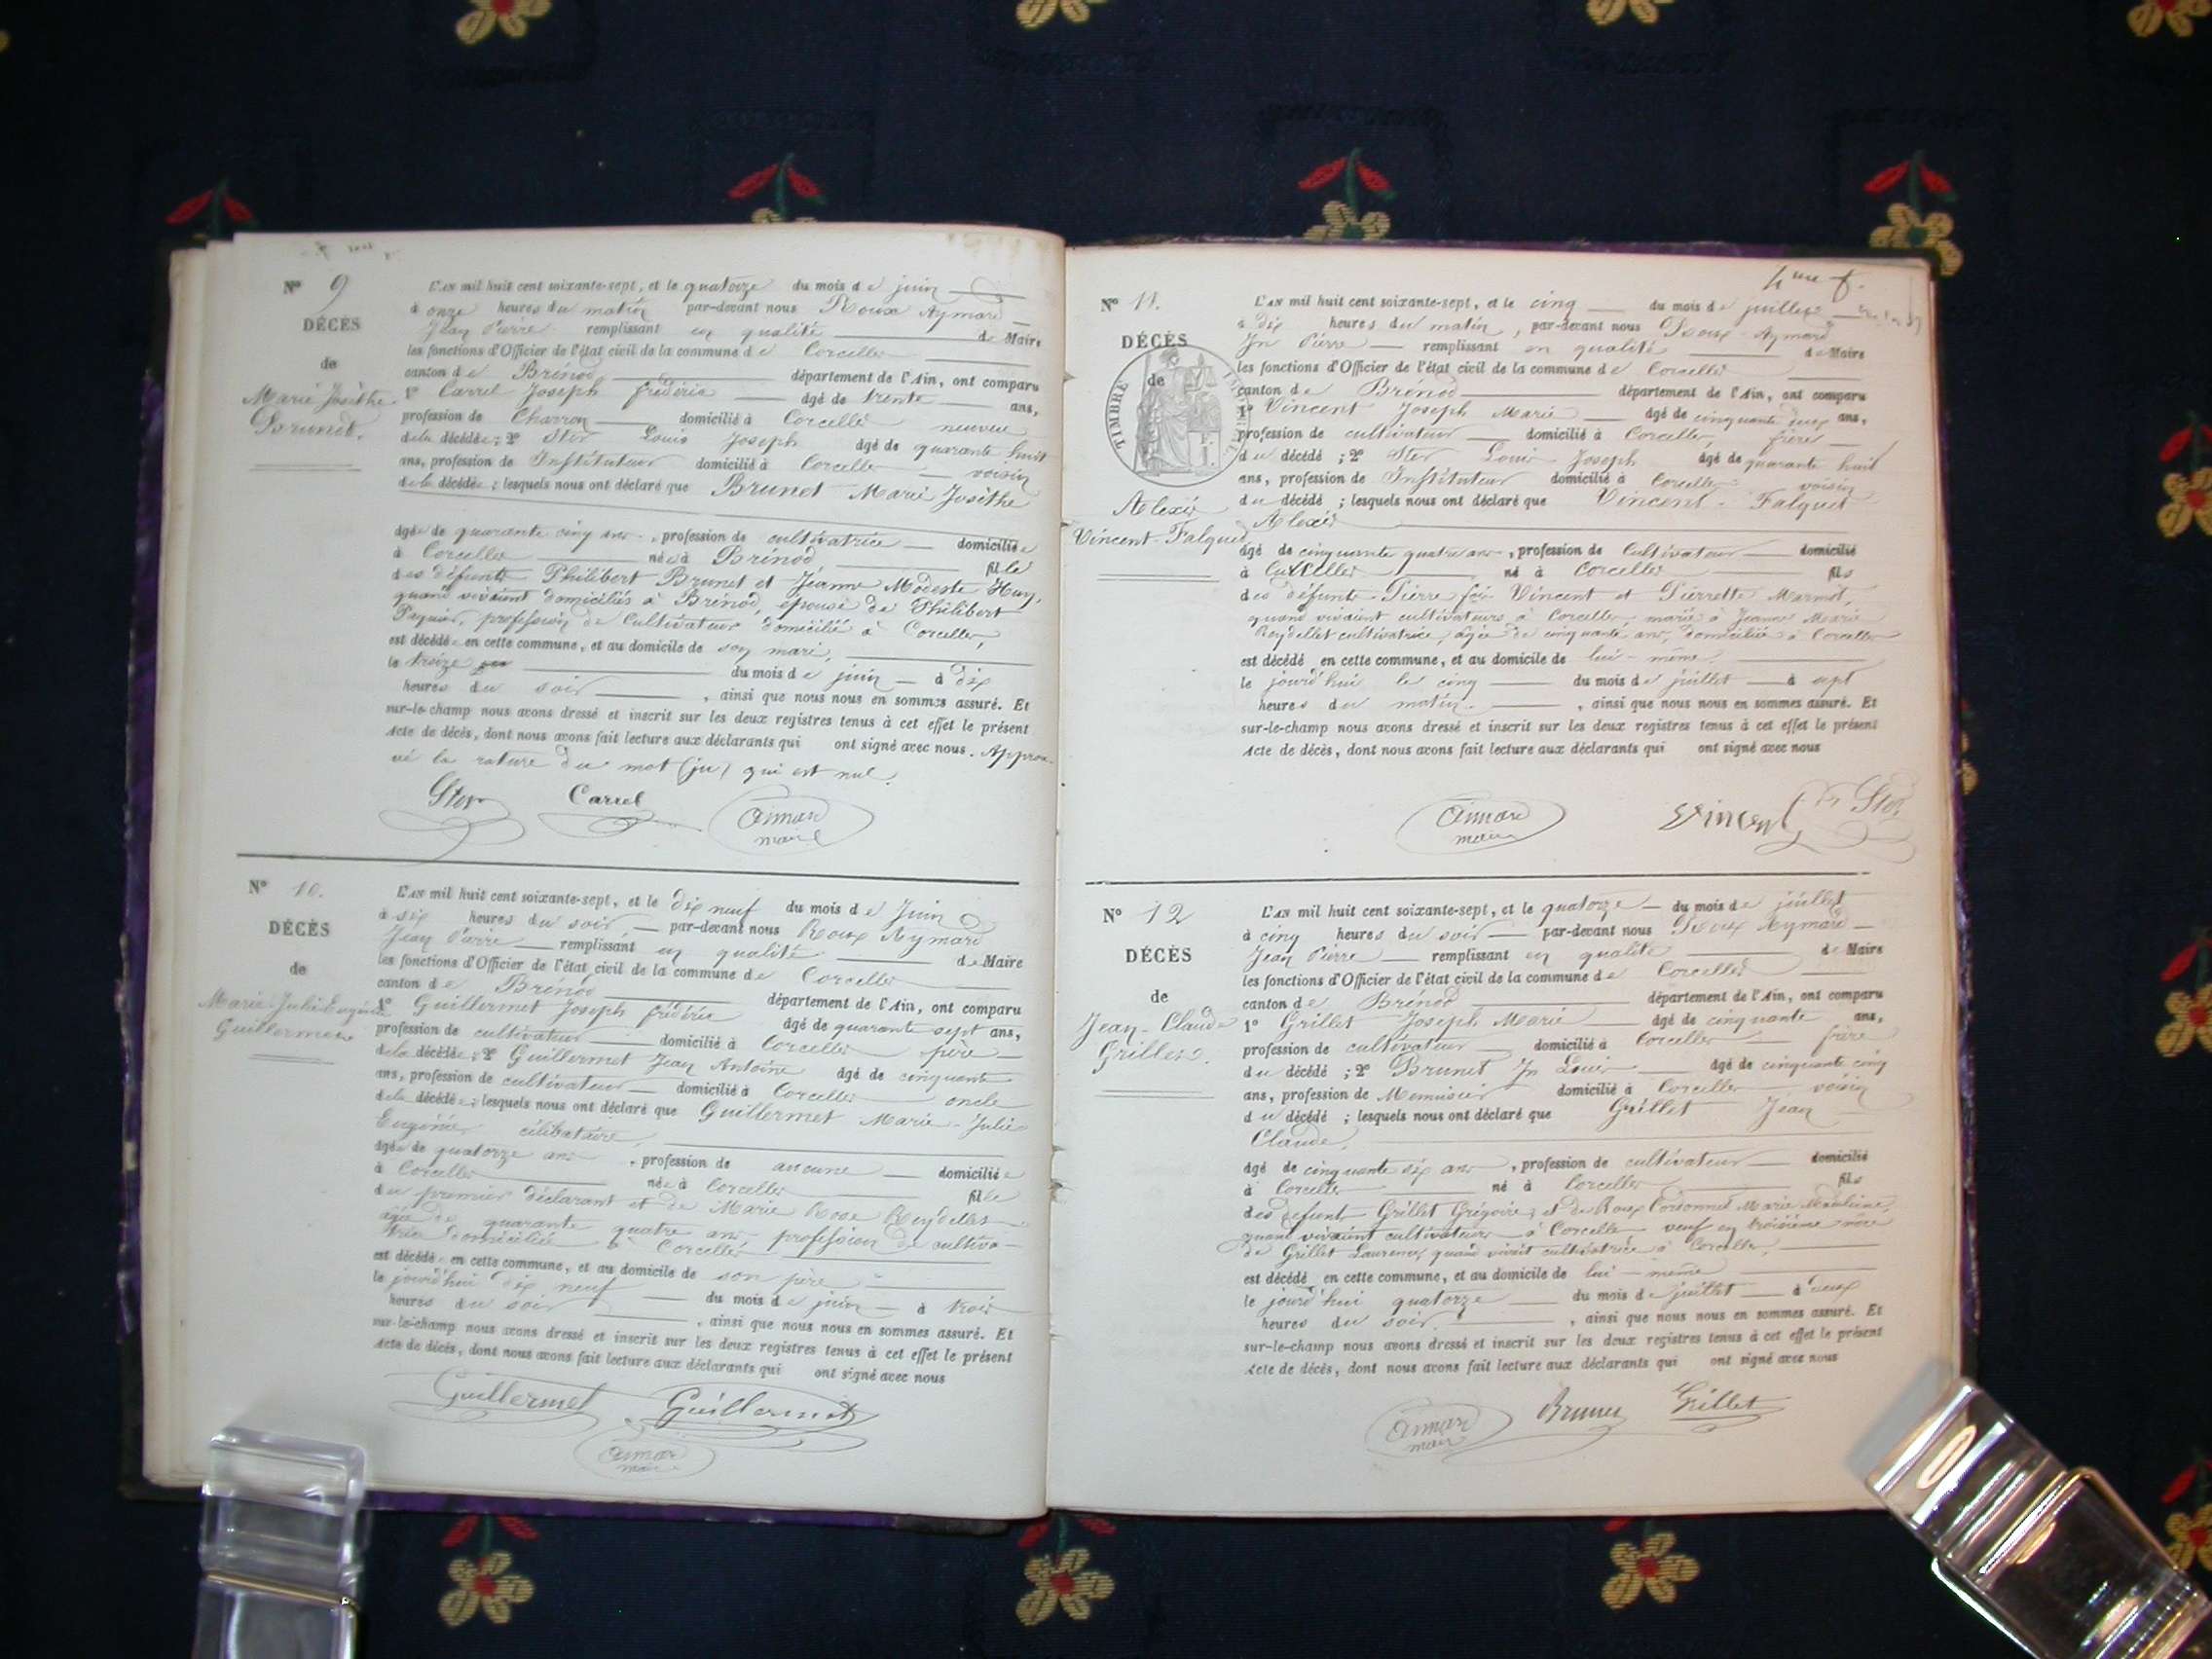 Nº 9
DÉCÈS
de
Marie Josèthe
Brunet.
L'AN mil huit cent soixante-sept, et le quatorze du mois de juin
à onze heures du matin par-devant nous Roux Aymard
Jean Pierre remplissant en qualité de Maire
les fonctions d'Officier de l'état civil de la commune de Corcelles
canton de Brénod département de l'Ain, ont comparu
1º Carrel Joseph frédéric âgé de trente ans,
profession de Charron domicilié à Corcelles neuveu
de la décédée; 2º Ster Louis Joseph âgé de quarante huit
ans, profession de Instituteur domicilié à Corcelles voisin
de la décédée; lesquels nous ont déclaré que Brunet Marie Josèthe
âgée de quarante cinq ans, profession de cultivatrice domiciliée
à Corcelles née à Brénod fille
des défunts Philibert Brunet et Jeanne Modeste Huy,
quand vivaient domiciliés à Brénod, épouse de Philibert
profession de Cultivateur domicilié à Corcelles,
est décédée en cette commune, et au domicile de son mari,
le treize du mois de juin à dix
heures du soir, ainsi que nous nous en sommes assuré. Et
sur-le-champ nous avons dressé et inscrit sur les deux registres tenus à cet effet le présent
acte de décès, dont nous avons fait lecture aux déclarants qui ont signé avec nous. Approu-
vé la rature du mot (ju) qui est nul.
Ster Carrel Aimard
maire
Nº 10.
DÉCÈS
de
Marie-Julie Eugénie
Guillermet
L'AN mil huit cent soixante-sept, et le dix neuf du mois de Juin
à six heures du soir, par-devant nous Roux Aymard
Jean Pierre remplissant en qualité de Maire
les fonctions d'Officier de l'état civil de la commune de Corcelles
canton de Brénod département de l'Ain, ont comparu
1º Guillermet Joseph frédéric âgé de quarante sept ans,
profession de cultivateur domicilié à Corcelles père
de la décédée; 2º Guillermet Jean Antoine âgé de cinquante
ans, profession de cultivateur domicilié à Corcelles oncle
de la décédée; lesquels nous ont déclaré que Guillermet Marie-Julie
Eugénie célibataire,
âgée de quatorze ans, profession de aucune domiciliée
à Corcelles née à Corcelles fille
du premier déclarant et de Marie Rose Reydellet
âgée de quarante quatre ans profession de cultiva-
trice domiciliée à Corcelles
est décédée en cette commune, et au domicile de son père
le jourd'hui dix neuf du mois de juin à trois
heures du soir, ainsi que nous nous en sommes assuré. Et
sur-le-champ nous avons dressé et inscrit sur les deux registres tenus à cet effet le présent
acte de décès, dont nous avons fait lecture aux déclarants qui ont signé avec nous
Guillermet Guillermet
Aimard
maire
4me f.
Nº 11.
DÉCÈS
de
TIMBRE
Alexis
Vincent-Falquet
L'AN mil huit cent soixante-sept, et le cinq du mois de juillet
à dix heures du matin, par-devant nous Roux-Aymard
Jn Pierre remplissant en qualité de Maire
les fonctions d'Officier de l'état civil de la commune de Corcelles
canton de Brénod département de l'Ain, ont comparu
1º Vincent Joseph Marie âgé de cinquante deux ans,
profession de cultivateur domicilié à Corcelles, frère
du décédé; 2º Ster Louis Joseph âgé de quarante huit
ans, profession de Instituteur domicilié à Corcelles voisin
du décédé; lesquels nous ont déclaré que Vincent-Falquet
Alexis
âgé de cinquante quatre ans, profession de Cultivateur domicilié
à Corcelles né à Corcelles fils
des défunts Pierre Vincent et Pierrette Marmet,
quand vivaient cultivateurs à Corcelles, marié à Jeanne Marie
Reydellet cultivatrice, âgée de cinquante ans, domiciliée à Corcelles
est décédé en cette commune, et au domicile de lui-même.
le jourd'hui le cinq du mois de juillet à sept
heures du matin, ainsi que nous nous en sommes assuré. Et
sur-le-champ nous avons dressé et inscrit sur les deux registres tenus à cet effet le présent
acte de décès, dont nous avons fait lecture aux déclarants qui ont signé avec nous
Aimard Vincent Ster
maire
Nº 12
DÉCÈS
de
Jean-Claude
Grillet.
L'AN mil huit cent soixante-sept, et le quatorze du mois de juillet
à cinq heures du soir par-devant nous Roux Aymard
Jean Pierre remplissant en qualité de Maire
les fonctions d'Officier de l'état civil de la commune de Corcelles
canton de Brénod département de l'Ain, ont comparu
1º Grillet Joseph Marie âgé de cinquante ans,
profession de cultivateur domicilié à Corcelles frère
du décédé; 2º Brunet Jn Louis âgé de cinquante cinq
ans, profession de Menuisier domicilié à Corcelles voisin
du décédé; lesquels nous ont déclaré que Grillet Jean
Claude,
âgé de cinquante six ans, profession de cultivateur domicilié
à Corcelles né à Corcelles fils
des défunts Grillet Grégoire, et de Roux Marie Madeleine,
quand vivaient cultivateurs à Corcelles veuf en troisième noce
de Grillet Laurence, quand vivait cultivatrice à Corcelles,
est décédé en cette commune, et au domicile de lui-même
le jourd'hui quatorze du mois de juillet à deux
heures du soir, ainsi que nous nous en sommes assuré. Et
sur-le-champ nous avons dressé et inscrit sur les deux registres tenus à cet effet le présent
acte de décès, dont nous avons fait lecture aux déclarants qui ont signé avec nous
Aimard Brunet Grillet
maire